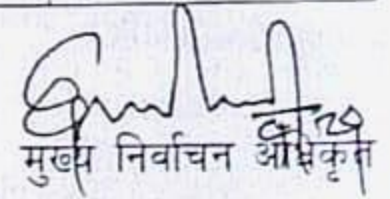 मुख्य निर्वाचन अधिकृत